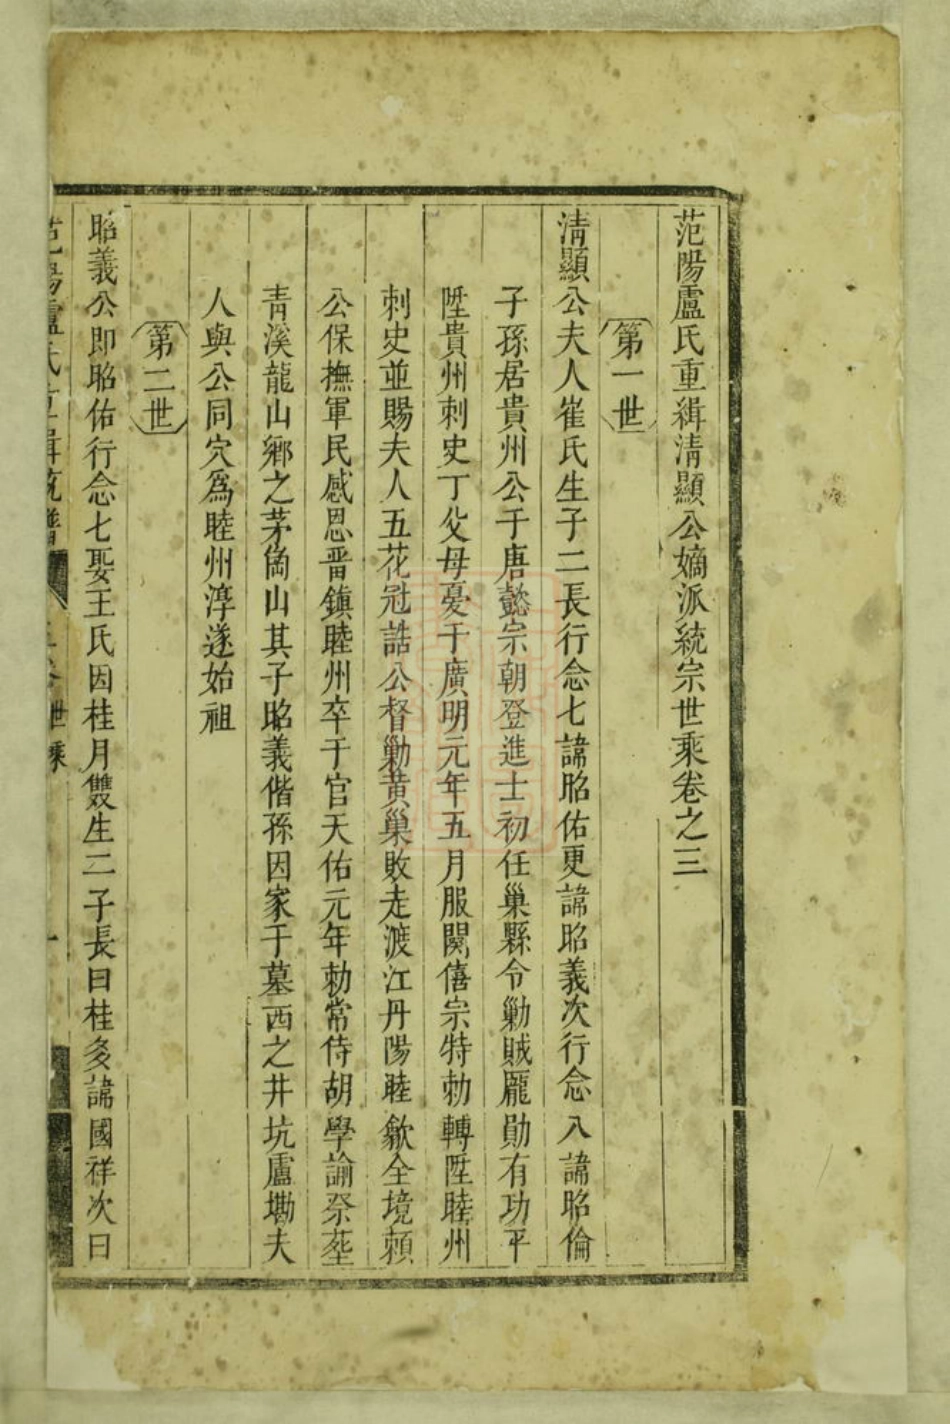 范陽盧氏重緝清顯公嫡派統宗世乘卷之三
第一世
清顯公夫人崔氏生子二長行念七諱昭佑更諱昭義次行念八諱昭倫
子孫居貴州公于唐懿宗朝登進士初任巢縣令勦賊龐勛有功平
陞貴州刺史丁父母憂于廣明元年五月服闋僖宗特勅轉陞睦州
刺史並賜夫人五花冠誥公督勦黃巢敗走渡江丹陽睦歙全境賴
公保撫軍民感恩晋鎮睦州卒于官天佑元年勅常侍胡學諭祭塟
青溪龍山鄉之茅崗山其子昭義偕孫因家于墓西之井坑盧墈夫
人與公同穴為睦州淳遂始祖
第二世
昭義公即昭佑行念七娶王氏因桂月雙生二子長曰桂𡖖諱國祥次曰